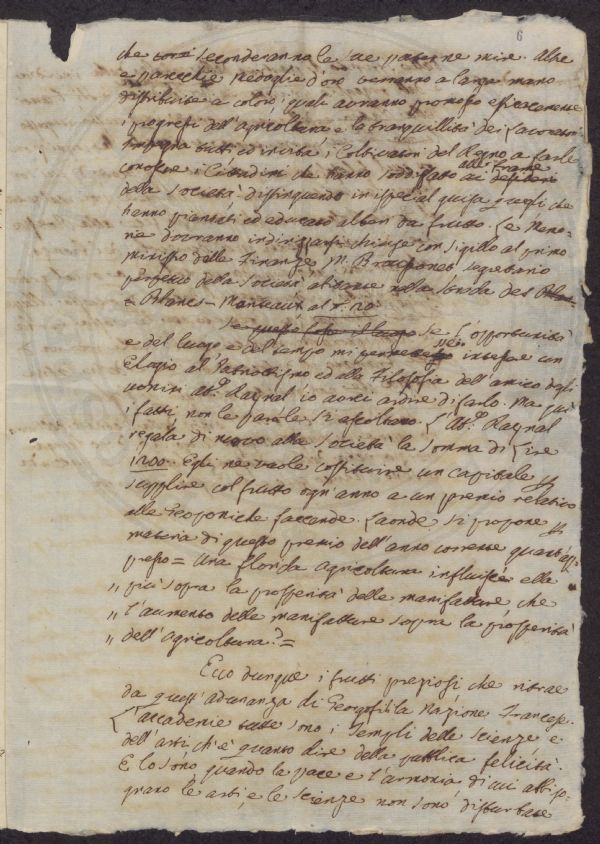 6
che seconderanno le sue paterne mire. Altre
e parecchie medaglie d'oro verranno a larga mano
distribuite a coloro, i quali avranno promosso efficacemente
i progressi dell'agricoltura e la tranquillità dei Lavoratori
tutti ed invita i Coltivatori del Regno a farle
conoscere i Cittadini che hanno soddisfatto alle brame
ai desiderj
della Società distinguendo in ispecial guisa quegli che
hanno piantati ed educato alberi da frutto. Le Memo-
rie dovranno indirizzarsi chiuse con sigillo al primo
ministro delle Finanze, M. Segretario
perpetuo della Società abitante nella Strada des
Blancs-Manteaux al n. 20.
Se l'opportunità
e del luogo e del tempo mi intesser un
Elogio al Patriottismo ed alla Filosofia dell'amico degli
uomini Ab.e Raynal io avrei ardire di farlo. Ma quì
i fatti non le parole si ascoltano. L'Ab.e Raynal
regala di nuovo alla Società la somma di Lire
1200. Egli ne vuole costituire un capitale p
supplire col frutto ogn'anno a un premio relativo
alle Geoponiche faccende. Laonde si propone p
materia di questo premio dell'anno corrente quant'ap-
presso = Una florida agricoltura influisce ella
„ più sopra la prosperità delle manifatture che
„ l'aumento delle manifatture sopra la prosperità
„ dell'agricoltura? =
Ecco dunque i frutti preziosi che ritrae
da quest'adunanza di Georgofili la Nazione Francese.
L'accademie tutte sono i Templi delle Scienze e
dell'arti ch'è quanto dire della pubblica felicità.
E lo sono quando la pace e l'armonia, di cui abbiso-
gnano le arti, e le scienze non sono disturbate